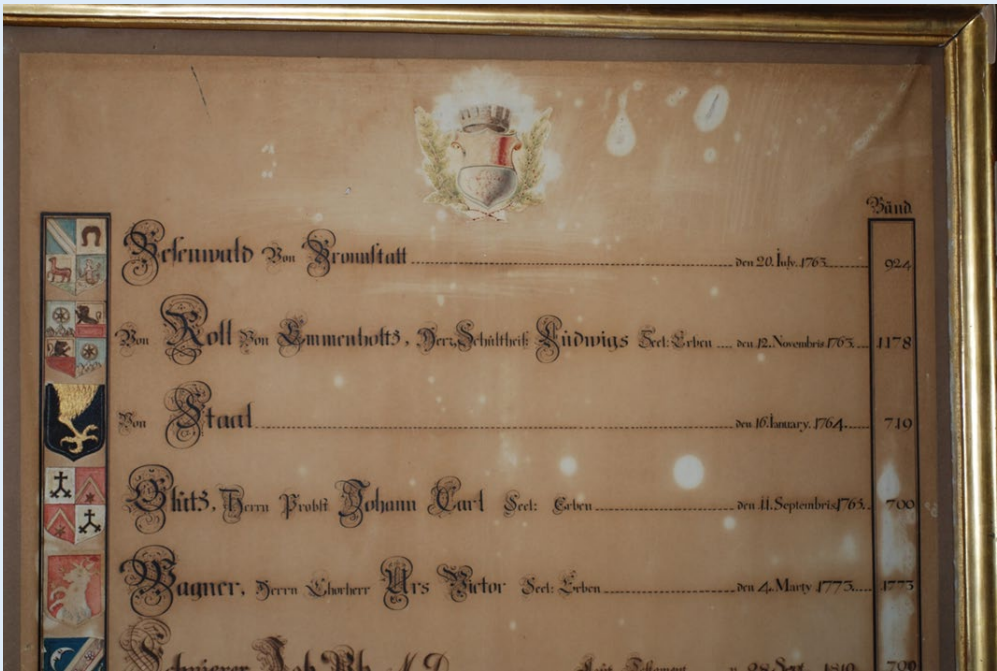 Bänd
Besenwald Von Bronnstatt den 20. July. 1763. 924
Von Roll Von Emmenholtz, Herr, Schultheiß Lüdwigs Seel: Erben den 12. Novembris 1763. 1178
Von Staal den 16. January. 1764. 719
Glütz, Herrn Probst Johann Carl Seel: Erben den 11. Septembris 1765. 700
Wagner, Herrn Chorherr Urs Victor Seel: Erben den 4. Marty 1773. 1773
28 Sept. 1819. 700